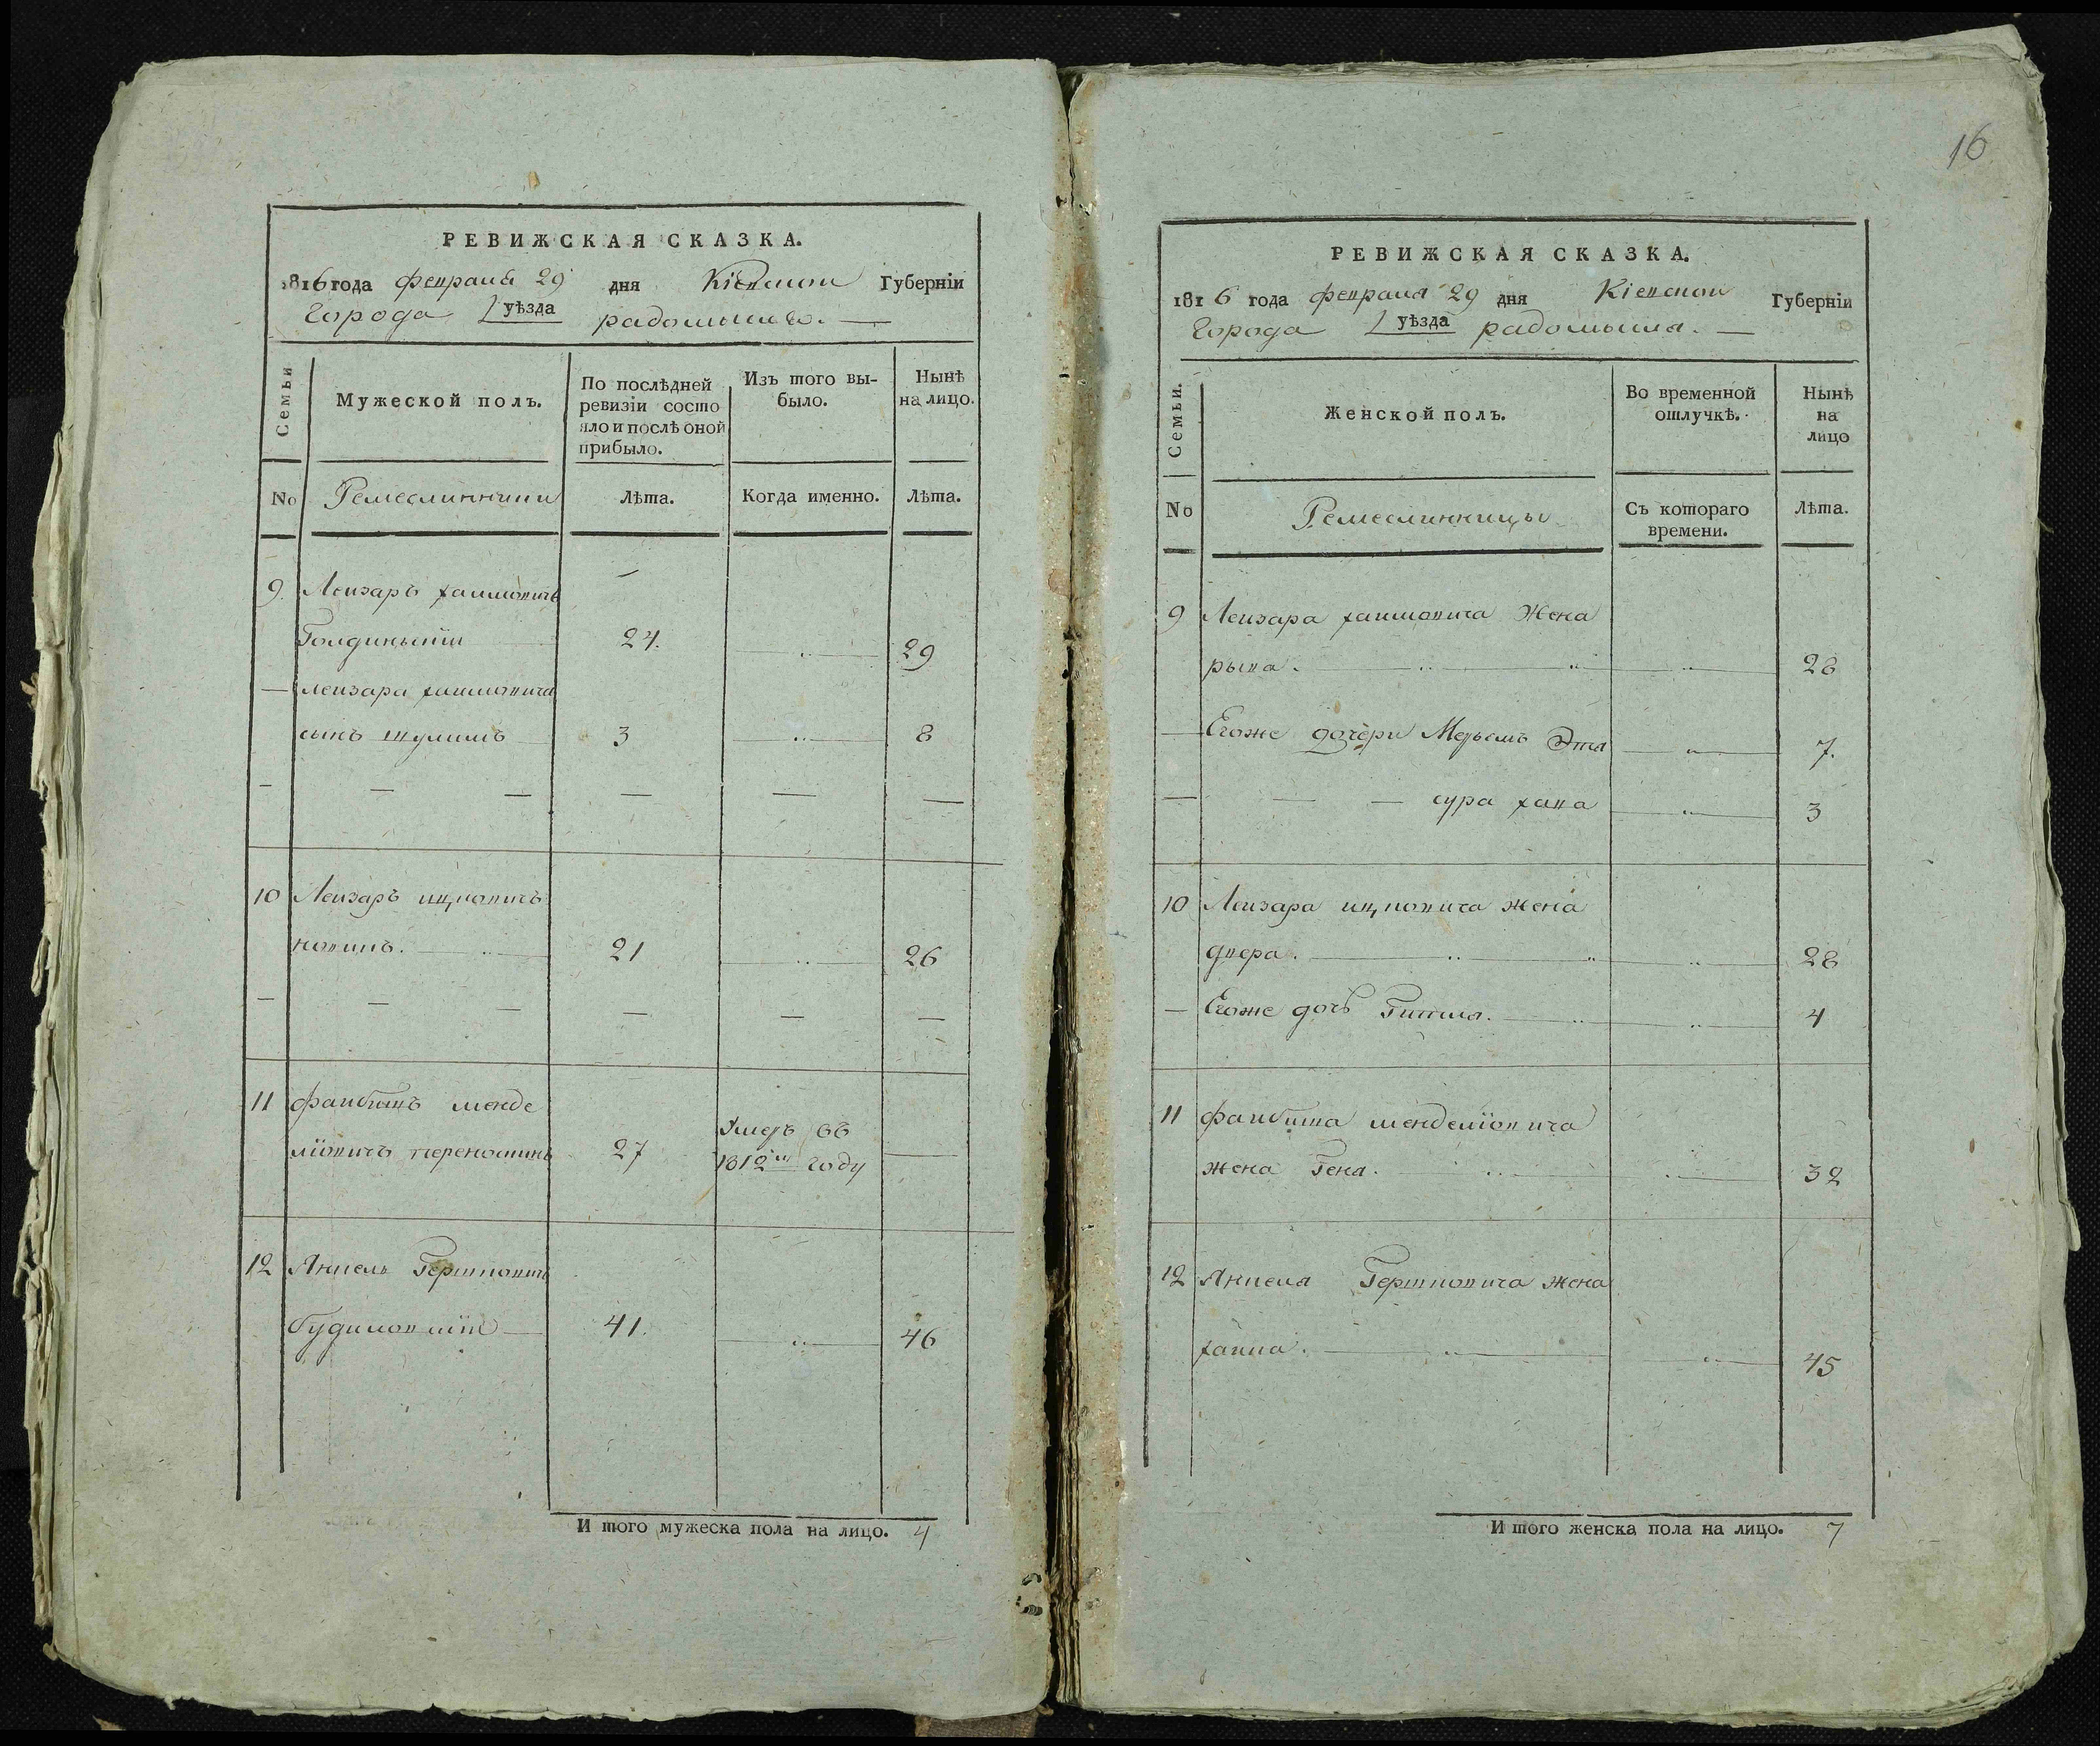 РЕВИЖСКАЯ СКАЗКА.
1816 года февраля 29 дня Кіевской Губерніи
Города уѣзда радомысля.
Семьи
Мужеской полъ.
По послѣдней ревизіи состо
яло и послѣ оной прибыло.
Изъ того вы-
было.
Нынѣ
на лицо.
No Ремеслинники Лѣта. Когда именно. Лѣта.
9. Леизаръ хаимовичъ
24. 29
— леизара хаимовича
сынъ шулимъ 3 8
10 Леизаръ ицковичъ
21 26
11 фаибишъ менде
Умеръ въ
27 1812м году
12 Анкель Гершковичъ
41. 46
И того мужеска пола на лицо. 4
16
РЕВИЖСКАЯ СКАЗКА.
1816 года февраля 29 дня Кіевской Губерніи
Города уѣзда радомысля.
Семьи.
Женской полъ.
Во временной
отлучкѣ.
Нынѣ
на
лицо
No Ремеслинницы Съ котораго
времени. Лѣта.
9 Леизара хаимовича Жена
рыва. 28
— Егоже дочери Мерьемъ Эта 7.
— — — сура хава 3
10 Леизара ицковича жена
двера. 28
— Егоже дочь Гитля. 4
11 фаибиша менделіовича
жена Гена. 32
12 Анкеля Гершковича жена
хаика. 45
И того женска пола на лицо. 7